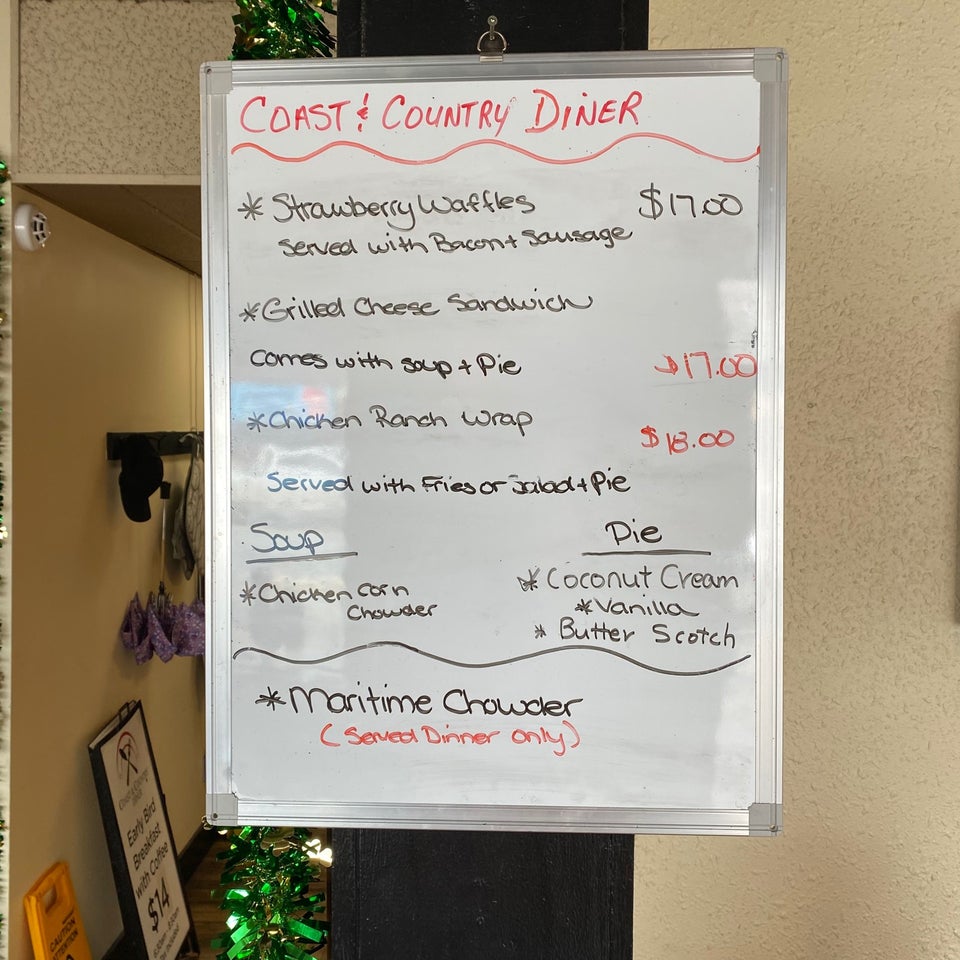 COAST & COUNTRY DINER
* Strawberry Waffles $17.00
Served with Bacon + Sausage
* Grilled Cheese Sandwich
Comes with soup + Pie $17.00
* Chicken Ranch Wrap
$18.00
Served with Fries or Salad + Pie
Soup
Pie
* Chicken Corn Chowder
* Coconut Cream
* Vanilla
* Butter Scotch
* Maritime Chowder
(Served Dinner only)
Early Bird
Breakfast
with Coffee
$14
CAUTION
ATTENTION